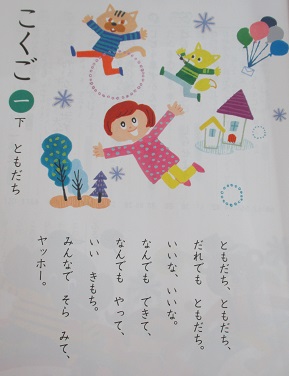 こくご
一
下
ともだち
ともだち、ともだち、
だれでも ともだち。
いいな、いいな。
なんでも できて、
なんでも やって、
いい きもち。
みんなで そら みて、
ヤッホー。